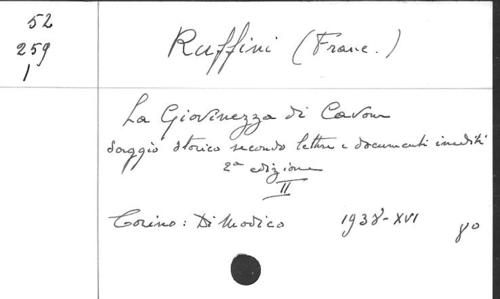 52
259
1
Ruffini (Franc.)
La Giovinezza di Cavour
Saggio storico secondo lettere e documenti inediti
2ª edizione
II
Torino: Di Modica 1938-XVI 8º